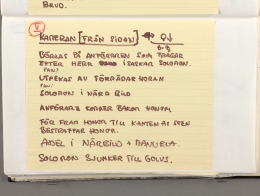 BRUD.
V
KAMERAN [FRÅN SIDAN]
BÖRJAS PÅ ANFÖRAREN SOM FRÅGAR
EFTER HERR I SASKAR SOLDRON.
PAN!
UTPEKAS AV FÖRRÄDARHORAN
PAN!
SOLDRON I NÄRA BILD
ANFÖRARE KORDER BAKOM HONOM
FÖR FRAM HONOM TILL KANTEN AV SCEN
BESTRAFFAR HONOM.
AXEL I NÄRBILD + MANUELA
SOLDRON SJUNKER TILL GOLVS.